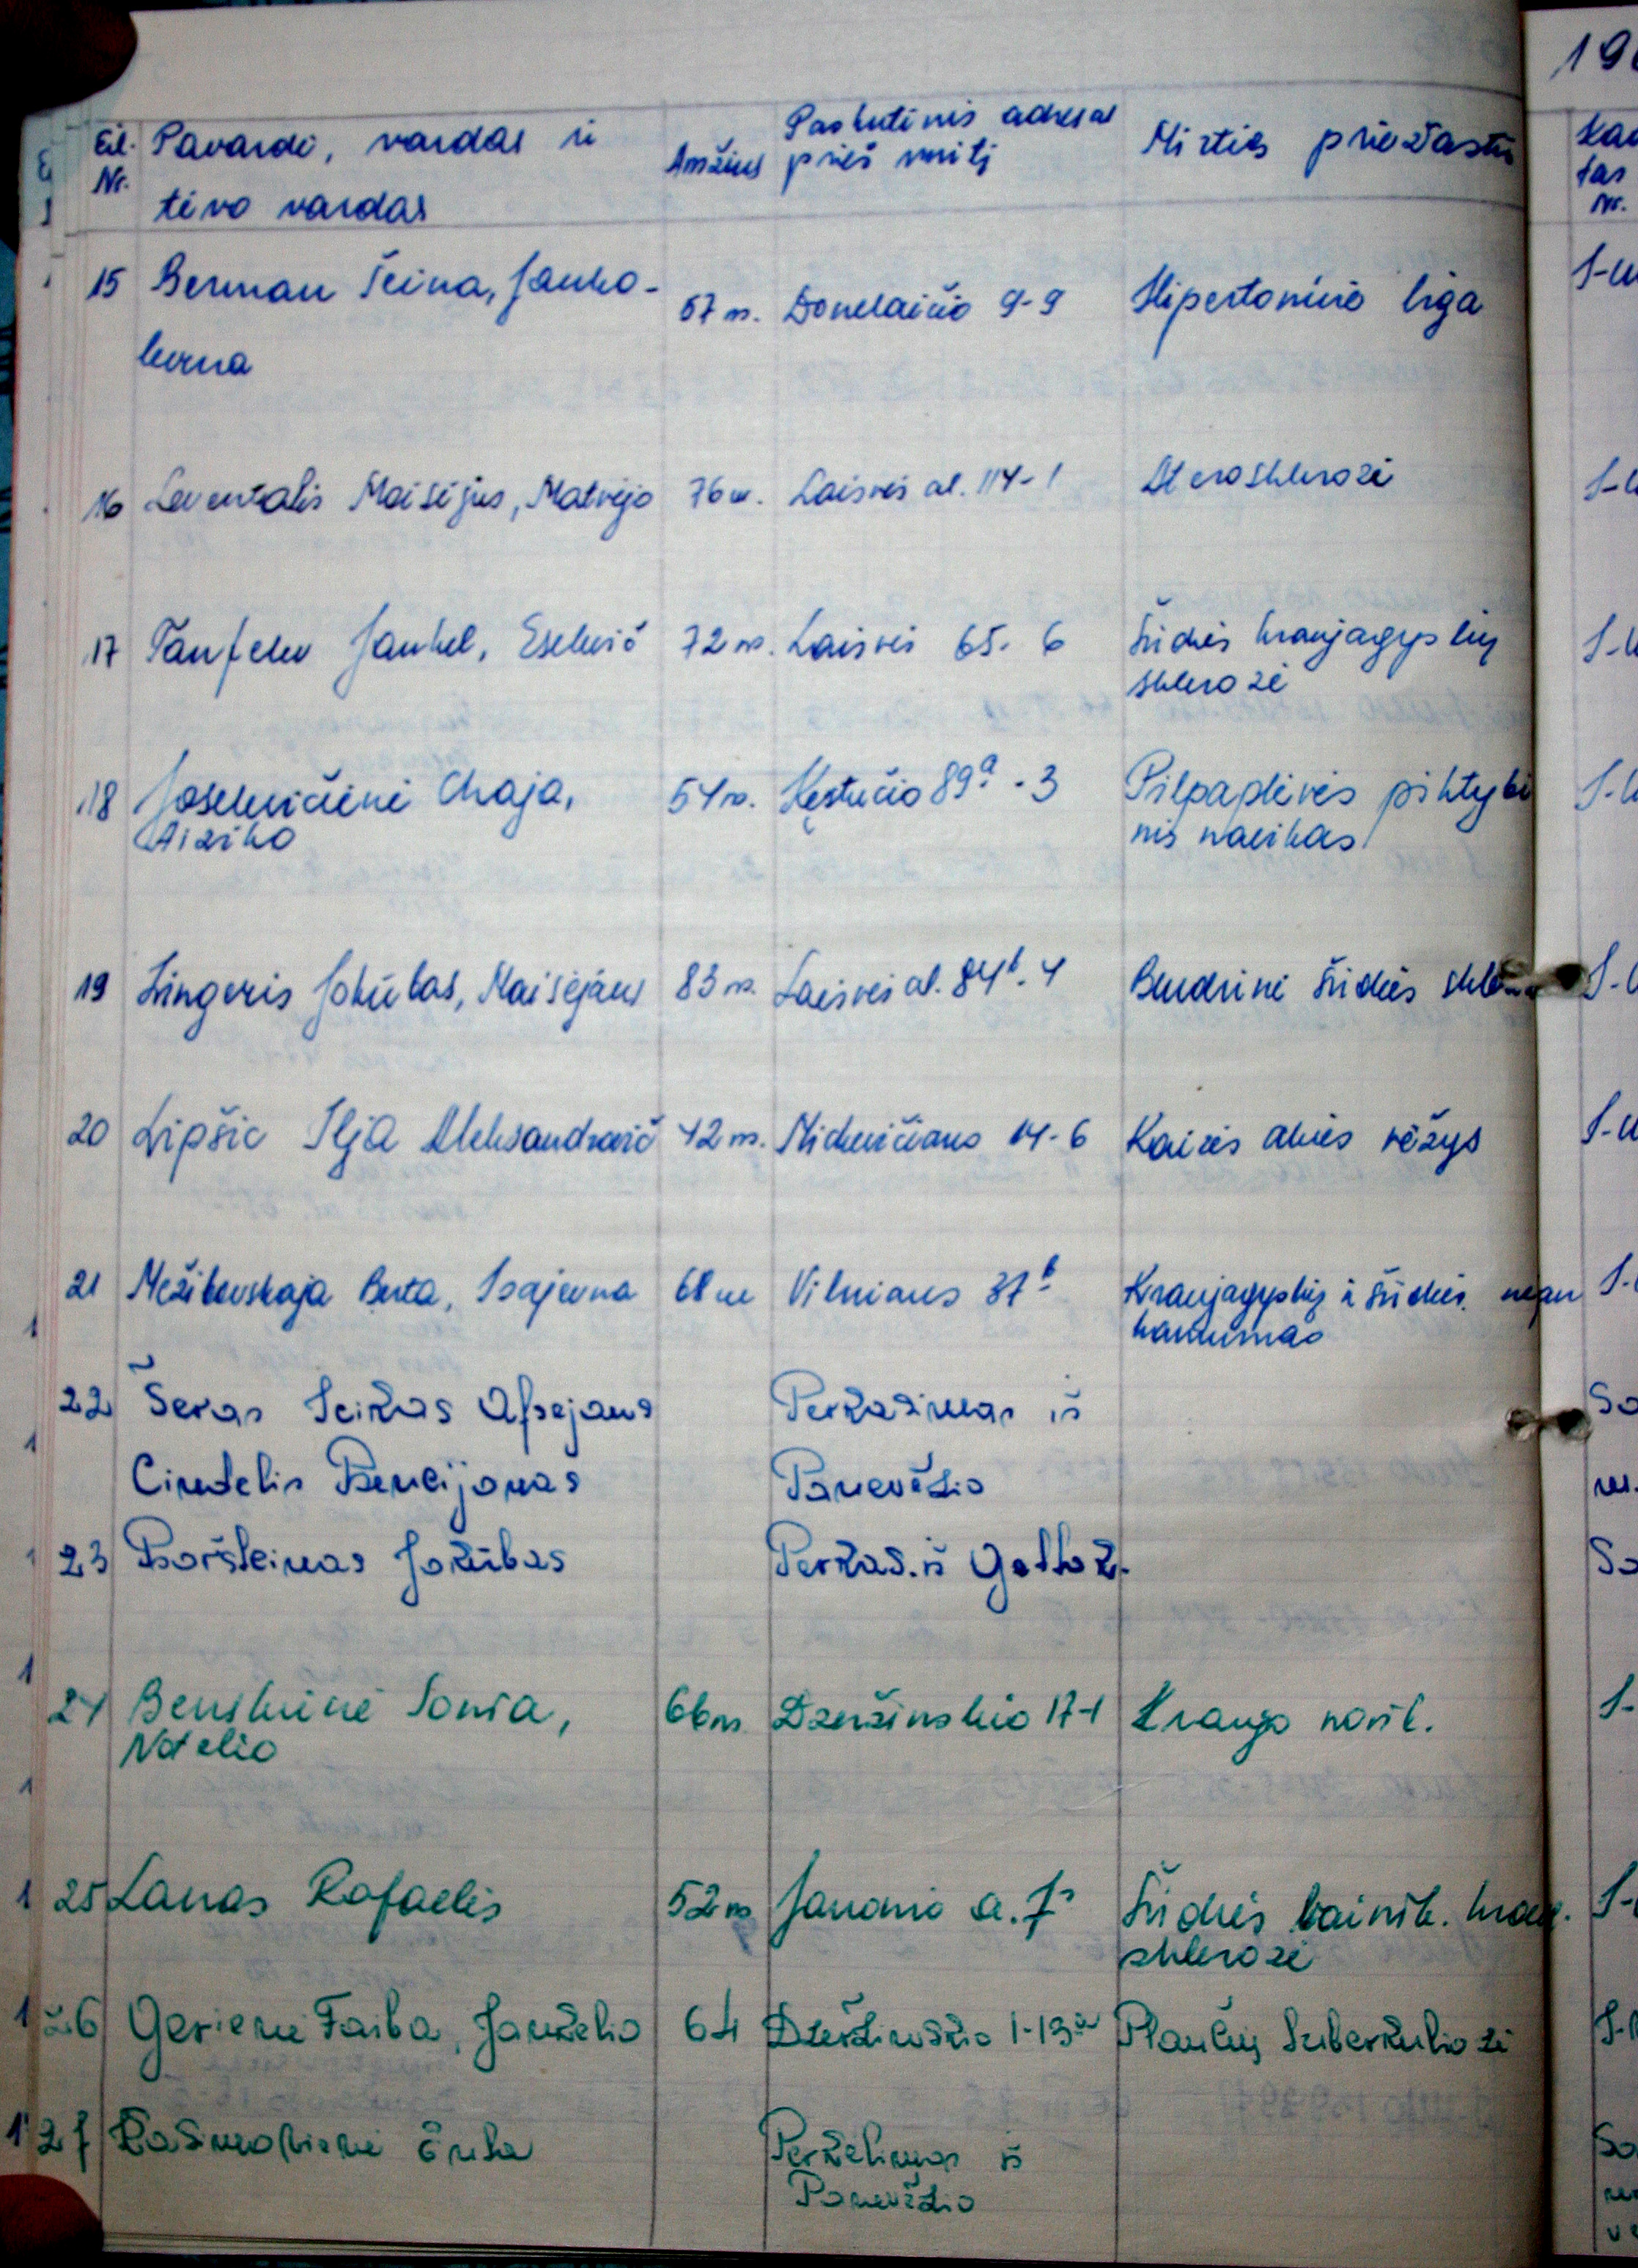 Eil. Nr. Pavardė, vardas ir tėvo vardas Amžius Paskutinis adresas prieš mirtį Mirties priežastis
15 Berman Šeina, Jankelevna 67 m. Donelaičio 9-9 Hipertoninė liga
16 Leventalis Moisiejus, Matvejo 76 m. Laisvės al. 114-1 Aterosklerozė
17 Jankel, 72 m. Laisvės 65-6 Širdies kraujagyslių
sklerozė
18 Joselevičienė Chaja, 54 m. Kęstučio 89a-3 Piktybi
Aiziko nis navikas
19 Lingeris Jokūbas, Maisiejaus 83 m. Laisvės al. 84b-4 Bendrinė širdies
20 Lipšic Ilja Aleksandrovič 42 m. Mickevičiaus 14-6 Kairės akies vėžys
21 Berta, Isajevna 68 m Vilniaus 37b Kraujagyslių ir širdies nepa
kankamumas
22 Šeras Perkasimas iš
Bencijonas Panevėžio
23 Boršteinas Jokūbas Perkas. iš
24 Sonia, 66 m Dzeržinskio 17-1 Kraujo
Notelio
25 Lanas Rafaelis 52 m Janonio a. 7 Širdies vainik. krauj.
sklerozė
26 Gerienė Faiba, Jankelio 64 Dzeržinskio 1-13a Plaučių tuberkuliozė
27 Perkėlimas iš
Panevėžio